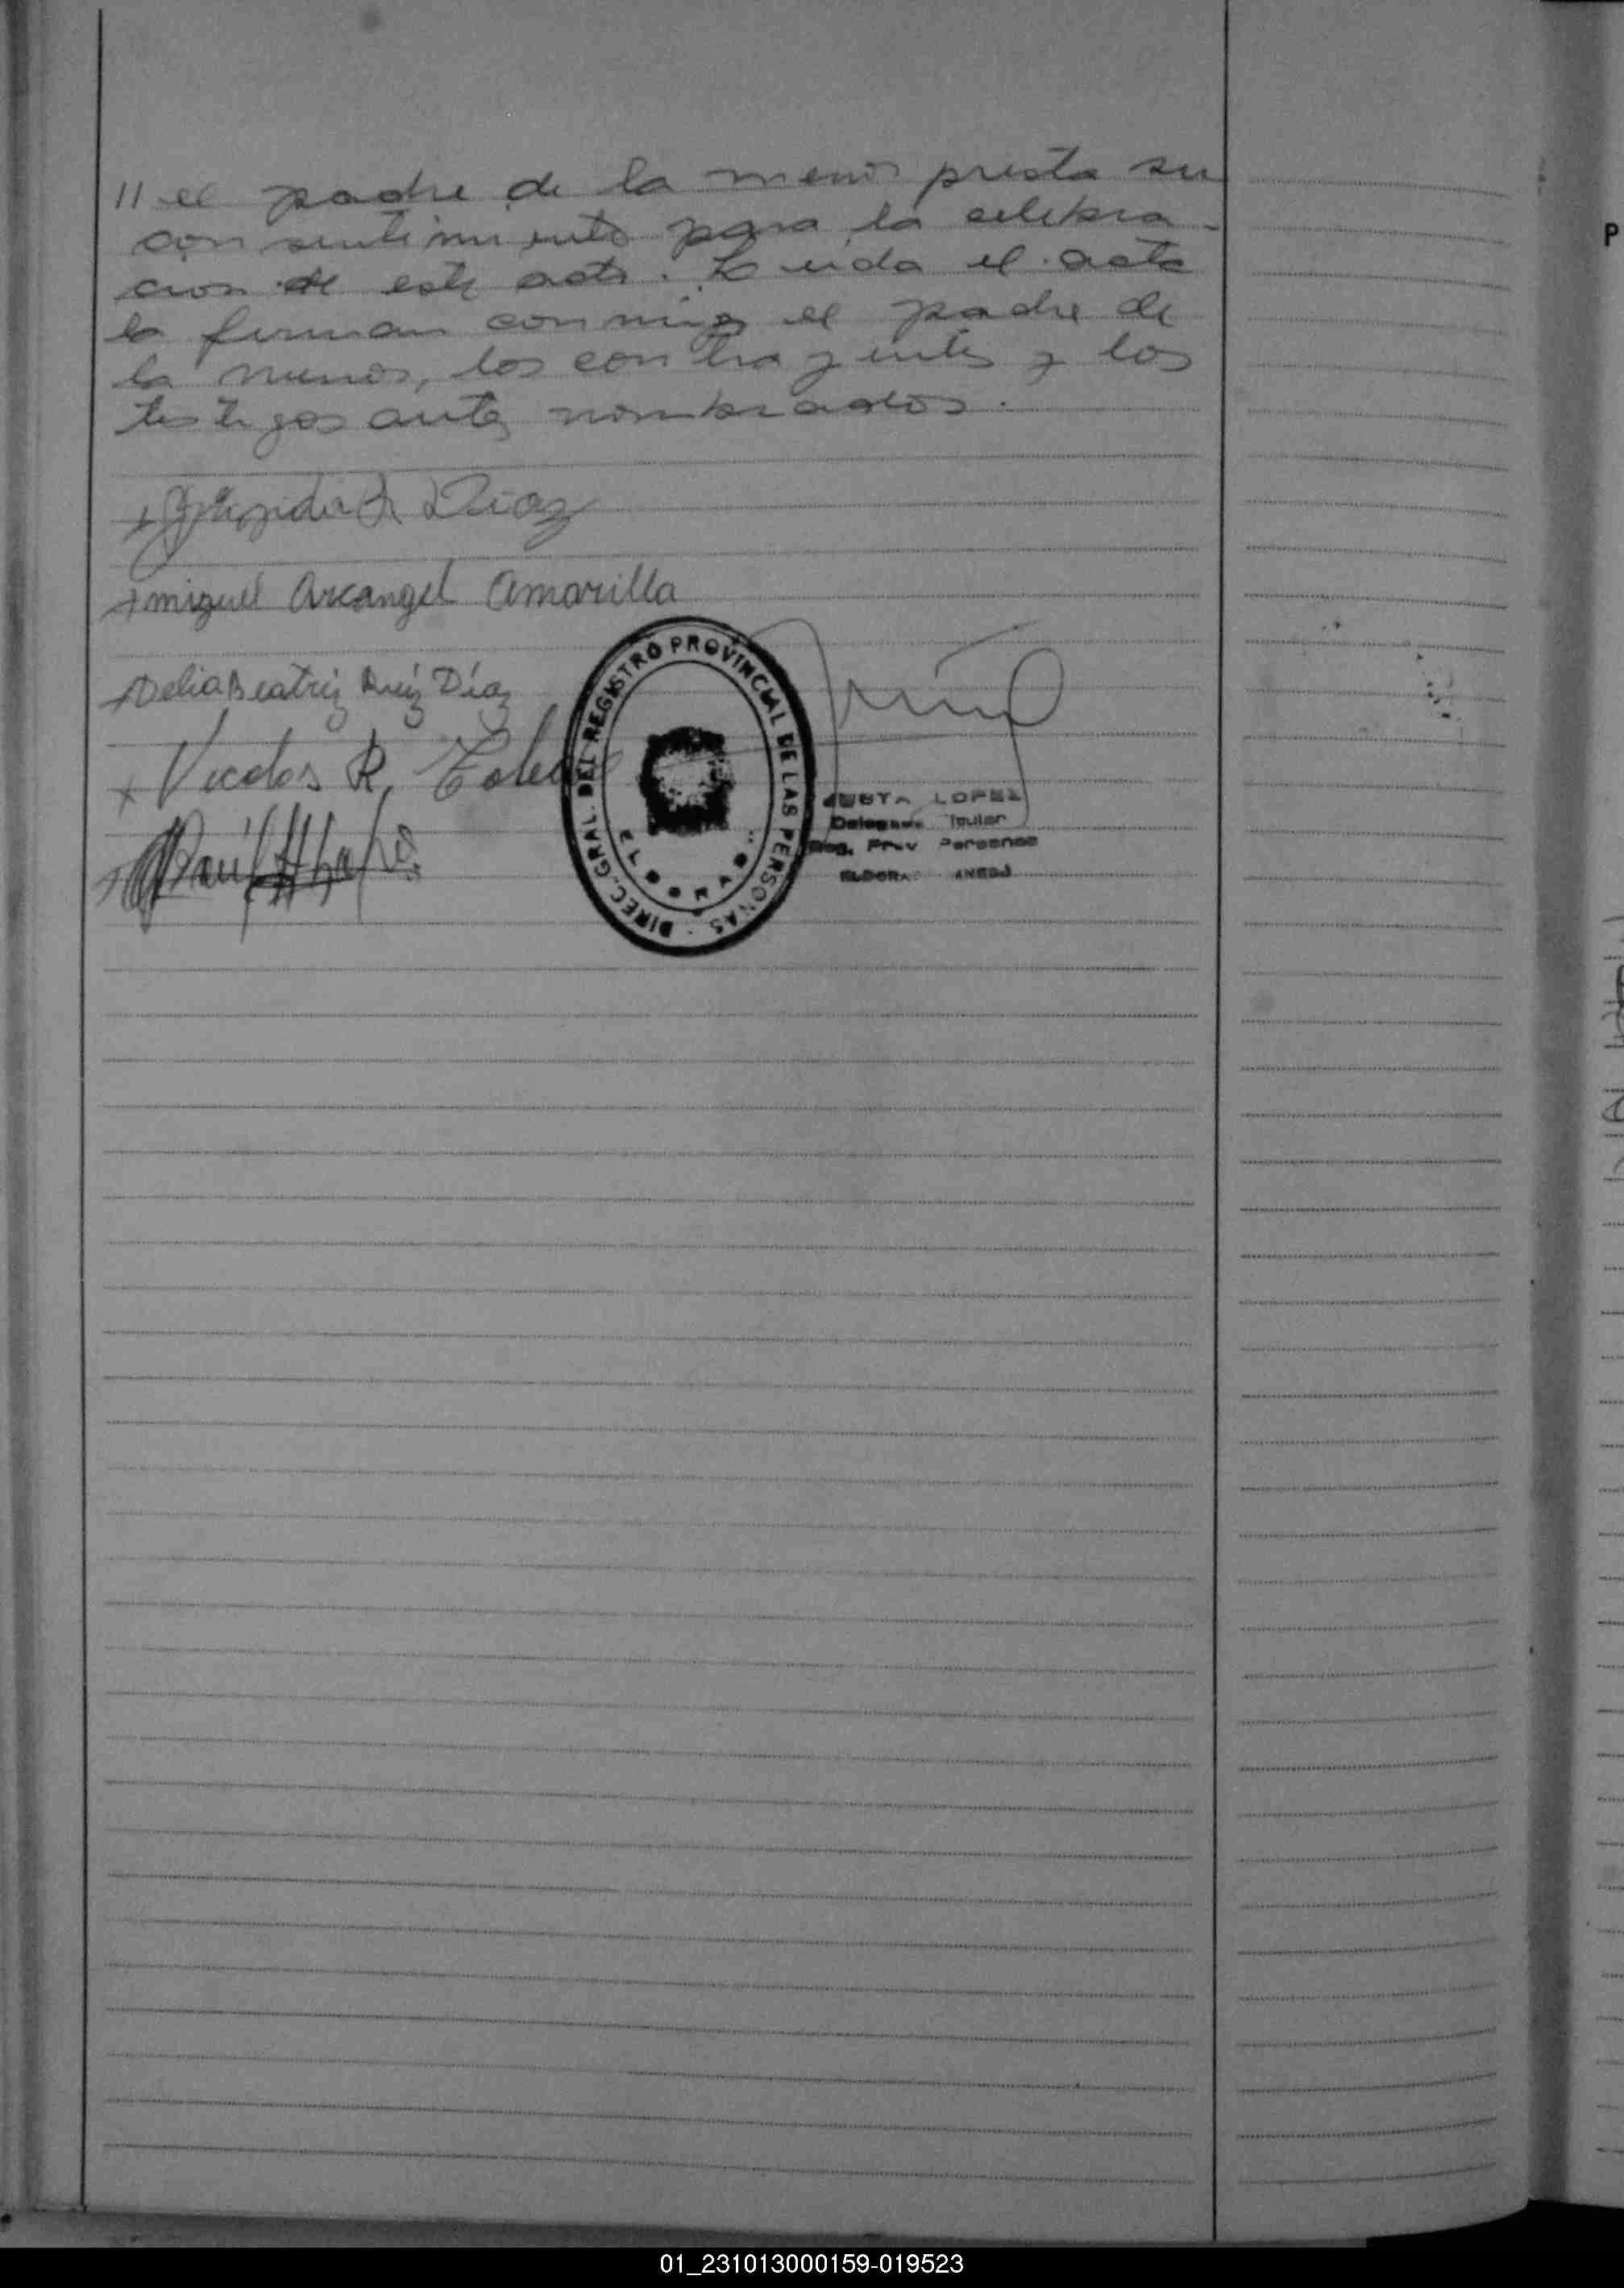 // el padre de la menor presta su
consentimiento para la celebra-
cion de este acto. Leida el acta
la firman conmigo el padre de
la menor, los contrayentes y los
testigos antes nombrados.
R Diaz
miguel Arcangel Amarilla
Delia Beatriz Ruiz Díaz
R.
DIREC. GRAL. DEL REGISTRO PROVINCIAL DE LAS PERSONAS
ELDORADO
LOPEZ
Titular
Reg. Prov Personas
P
01_231013000159-019523